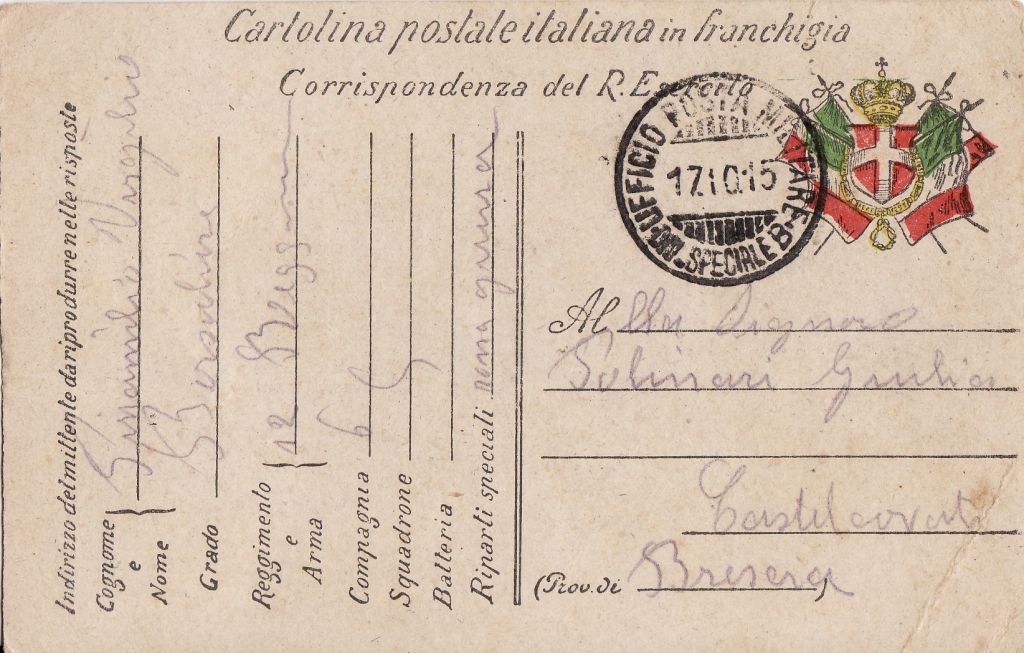 Cartolina postale italiana in franchigia
Corrispondenza del R. Esercito
UFFICIO POSTA MILITARE
17.10.15
SPECIALE
Indirizzo del mittente da riprodurre nelle risposte
Cognome e Nome Virgilio
Grado
Reggimento e Arma 12
Compagnia 6
Squadrone
Batteria
Riparti speciali zona guerra
Al
Giulia
Castelcovati
(Prov. di Brescia)